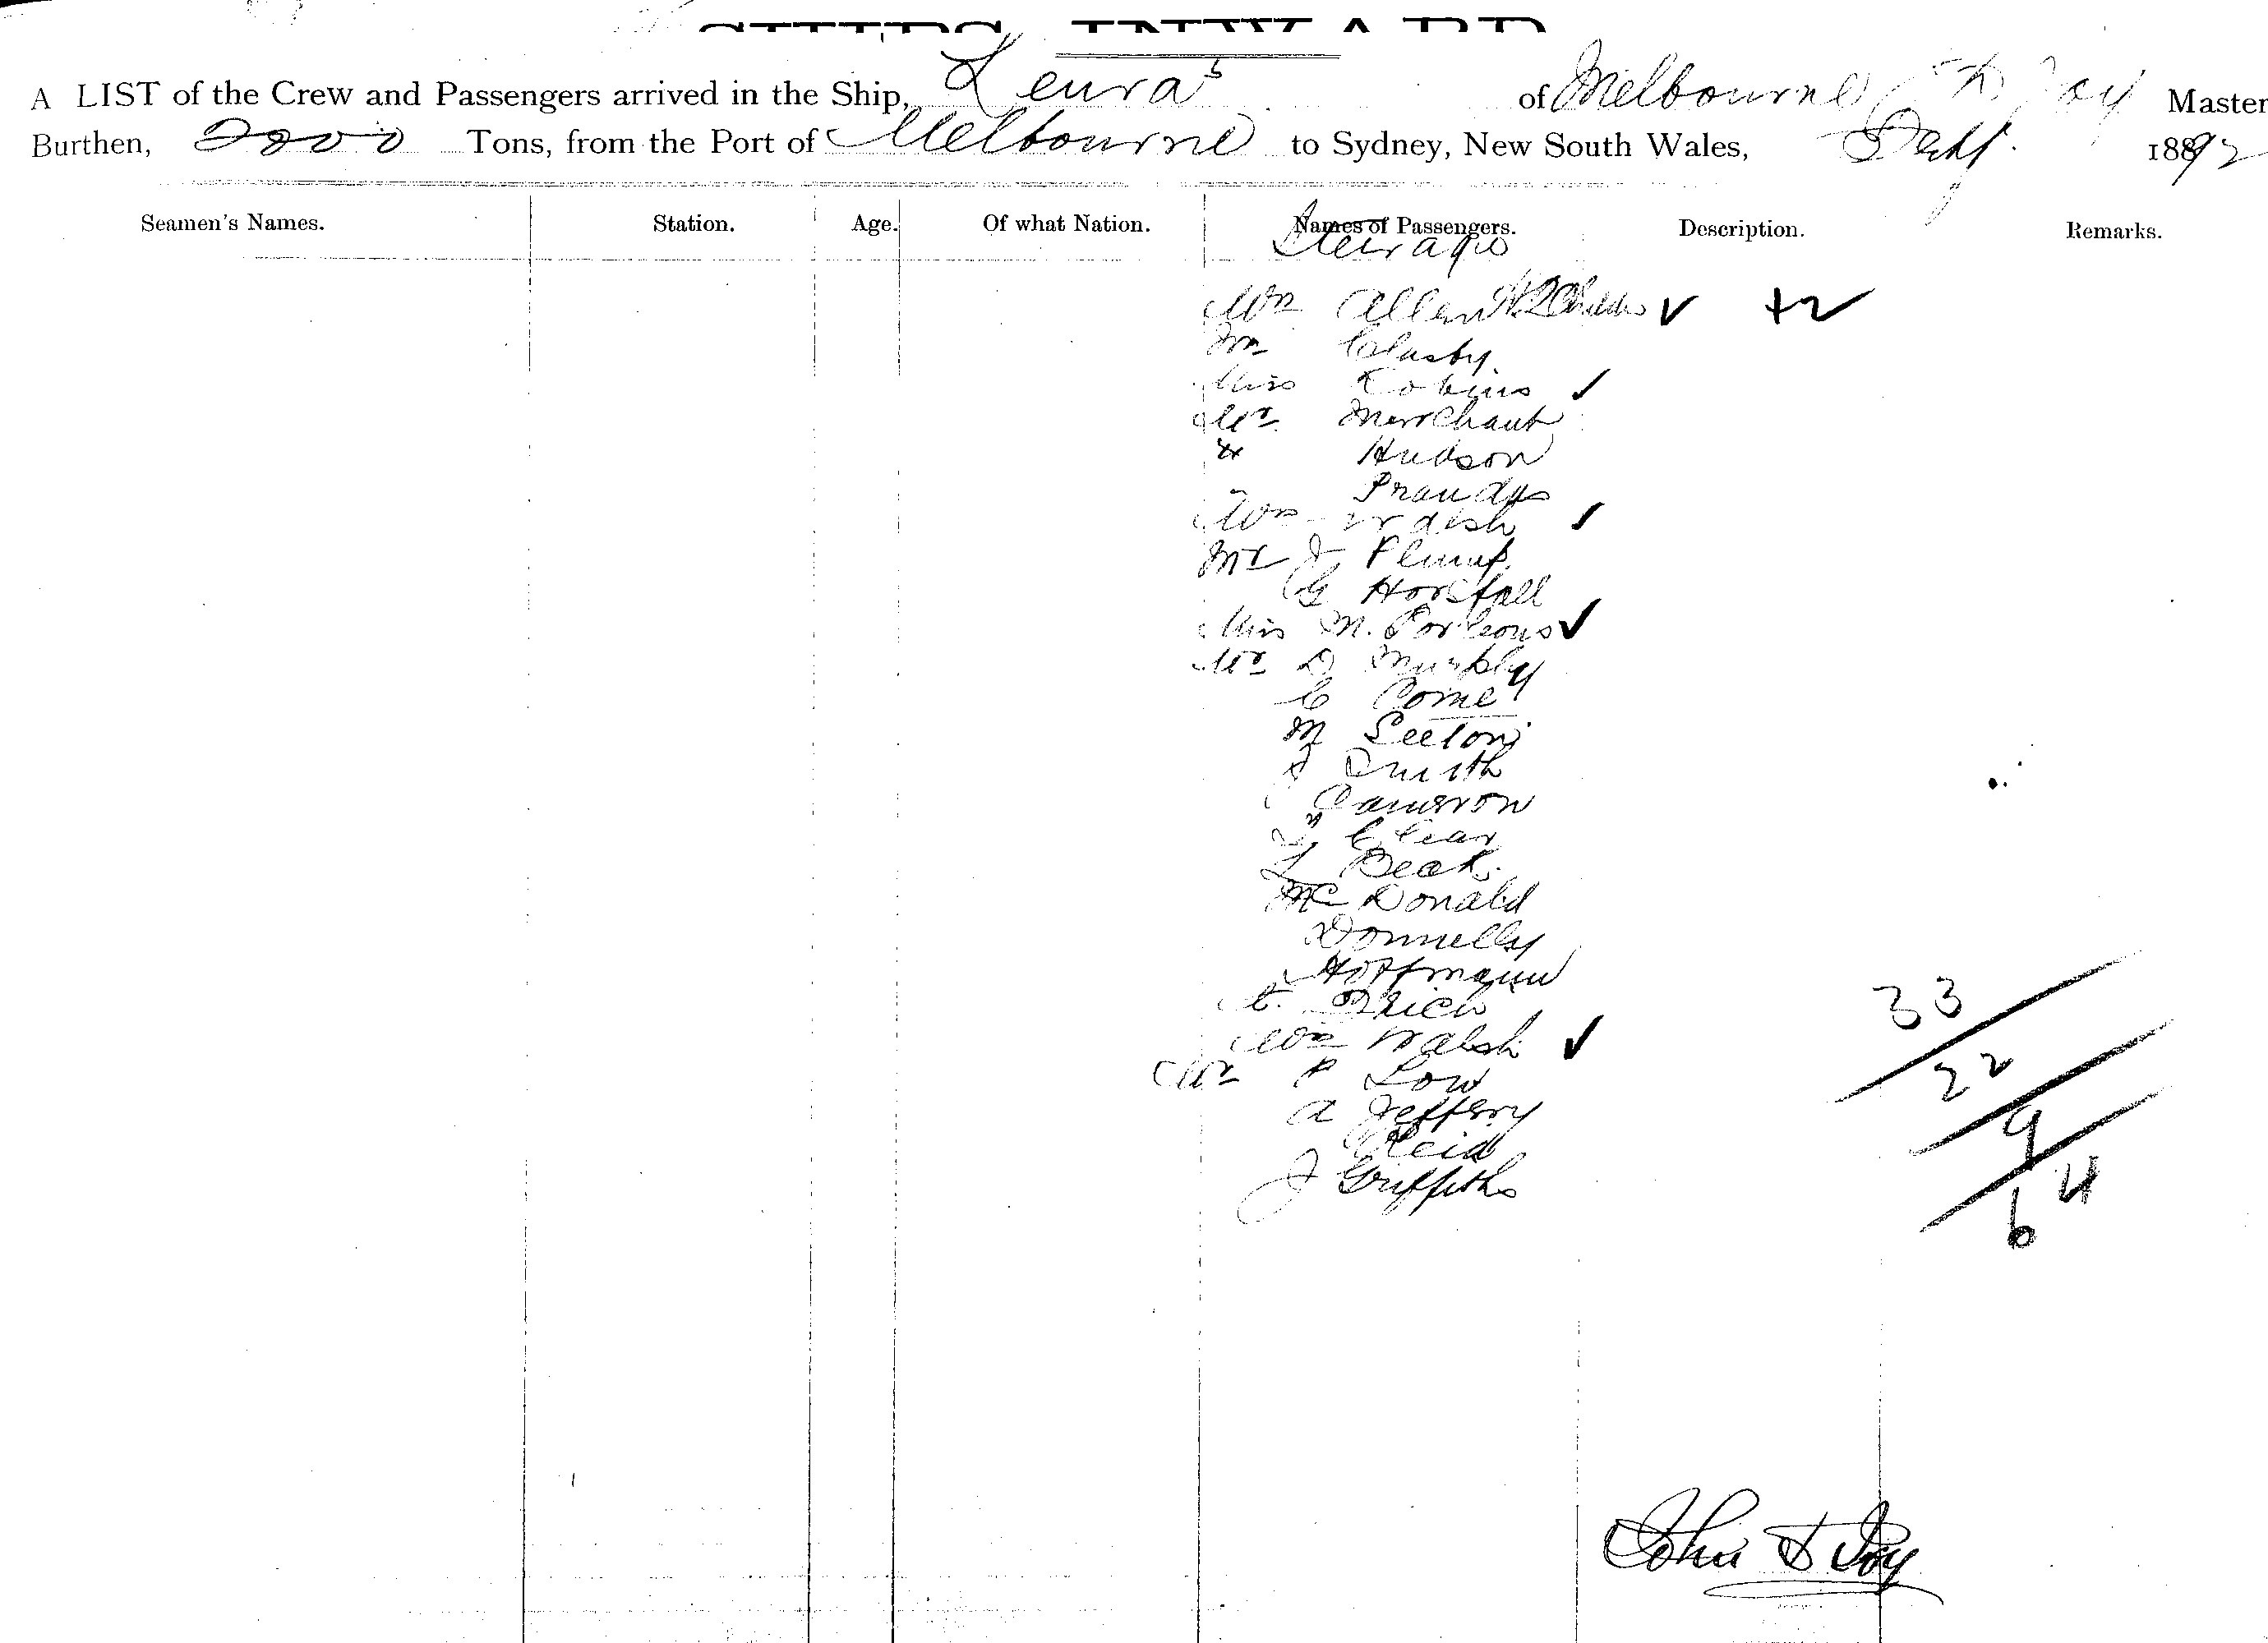 SHIPS INWARD
A LIST of the Crew and Passengers arrived in the Ship, Leura of Melbourne Master
Burthen, 2000 Tons, from the Port of Melbourne to Sydney, New South Wales, Sept. 1892
Seamen's Names. Station. Age. Of what Nation. Names of Passengers. Description. Remarks.
Steerage
Allen & 2 Childn +2
Clasby
Miss Robins
Mr Merchant
Hudson
Walsh
Mr J Plump
G Horsfall
Miss M. Porteous
Mr D Murphy
C Corne
M Seeton
J Smith
Cameron
Clear
L Beak
McDonald
Donnelly
Hoffmann
Walsh
Mr P Low
A Jeffery
Reid
J Griffiths
33
22
9
64
John D Joy